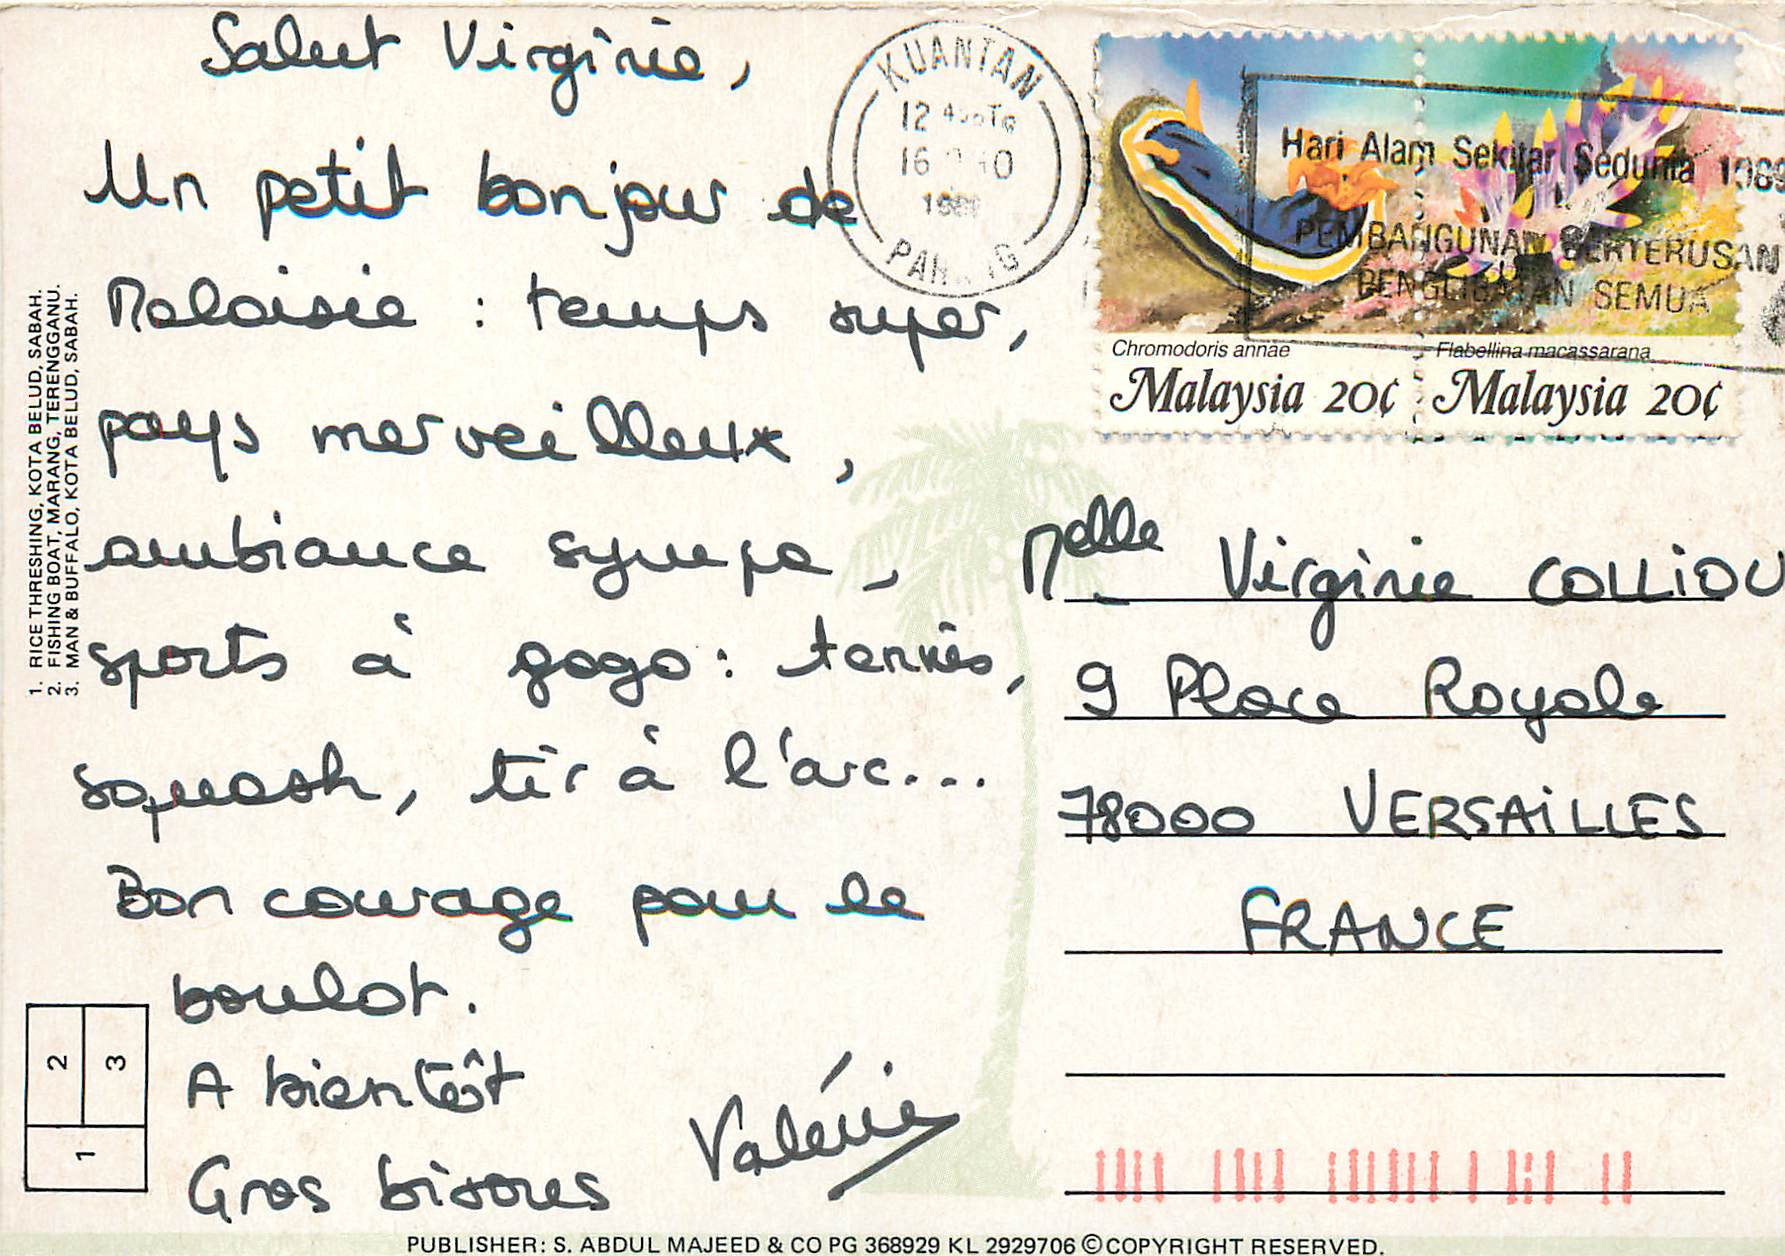 Salut Virginie,
Un petit bonjour de
Malaisie : temps super,
pays merveilleux,
ambiance sympa,
sports à gogo : tennis,
squash, tir à l'arc...
Bon courage pour le
boulot.
A bientôt
Gros bisous
Valérie
1. RICE THRESHING, KOTA BELUD, SABAH.
2. FISHING BOAT, MARANG, TERENGGANU.
3. MAN & BUFFALO, KOTA BELUD, SABAH.
2 3
1
KUANTAN
12
16
PAHANG
Hari Alam Sekitar Sedunia 1989
PEMBANGUNAN BERTERUSAN
PENGLIBATAN SEMUA
Chromodoris annae
Malaysia 20¢
Flabellina macassarana
Malaysia 20¢
Melle Virginie COLLIOU
9 Place Royale
78000 VERSAILLES
FRANCE
PUBLISHER: S. ABDUL MAJEED & CO PG 368929 KL 2929706 ©COPYRIGHT RESERVED.